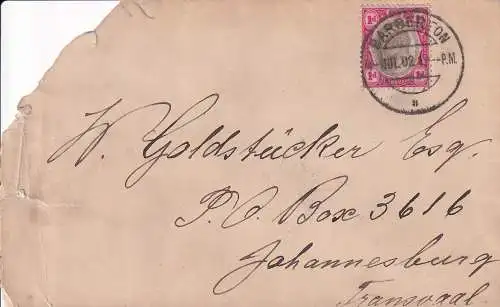 1d 1d
BARBERTON
JUL 02
P.M.
1d 1d
W. Goldstücker Esq.
P.O. Box 3616
Johannesburg
Transvaal